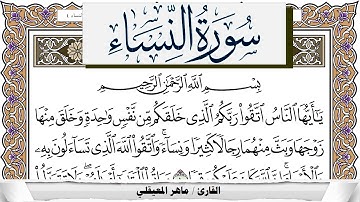 سورة النساء
بِسْمِ ٱللَّهِ ٱلرَّحْمَٰنِ ٱلرَّحِيمِ
يَٰٓأَيُّهَا ٱلنَّاسُ ٱتَّقُوا۟ رَبَّكُمُ ٱلَّذِى خَلَقَكُم مِّن نَّفْسٍ وَٰحِدَةٍ وَخَلَقَ مِنْهَا
زَوْجَهَا وَبَثَّ مِنْهُمَا رِجَالًا كَثِيرًا وَنِسَآءً وَٱتَّقُوا۟ ٱللَّهَ ٱلَّذِى تَسَآءَلُونَ بِهِۦ
القارئ / ماهر المعيقلي